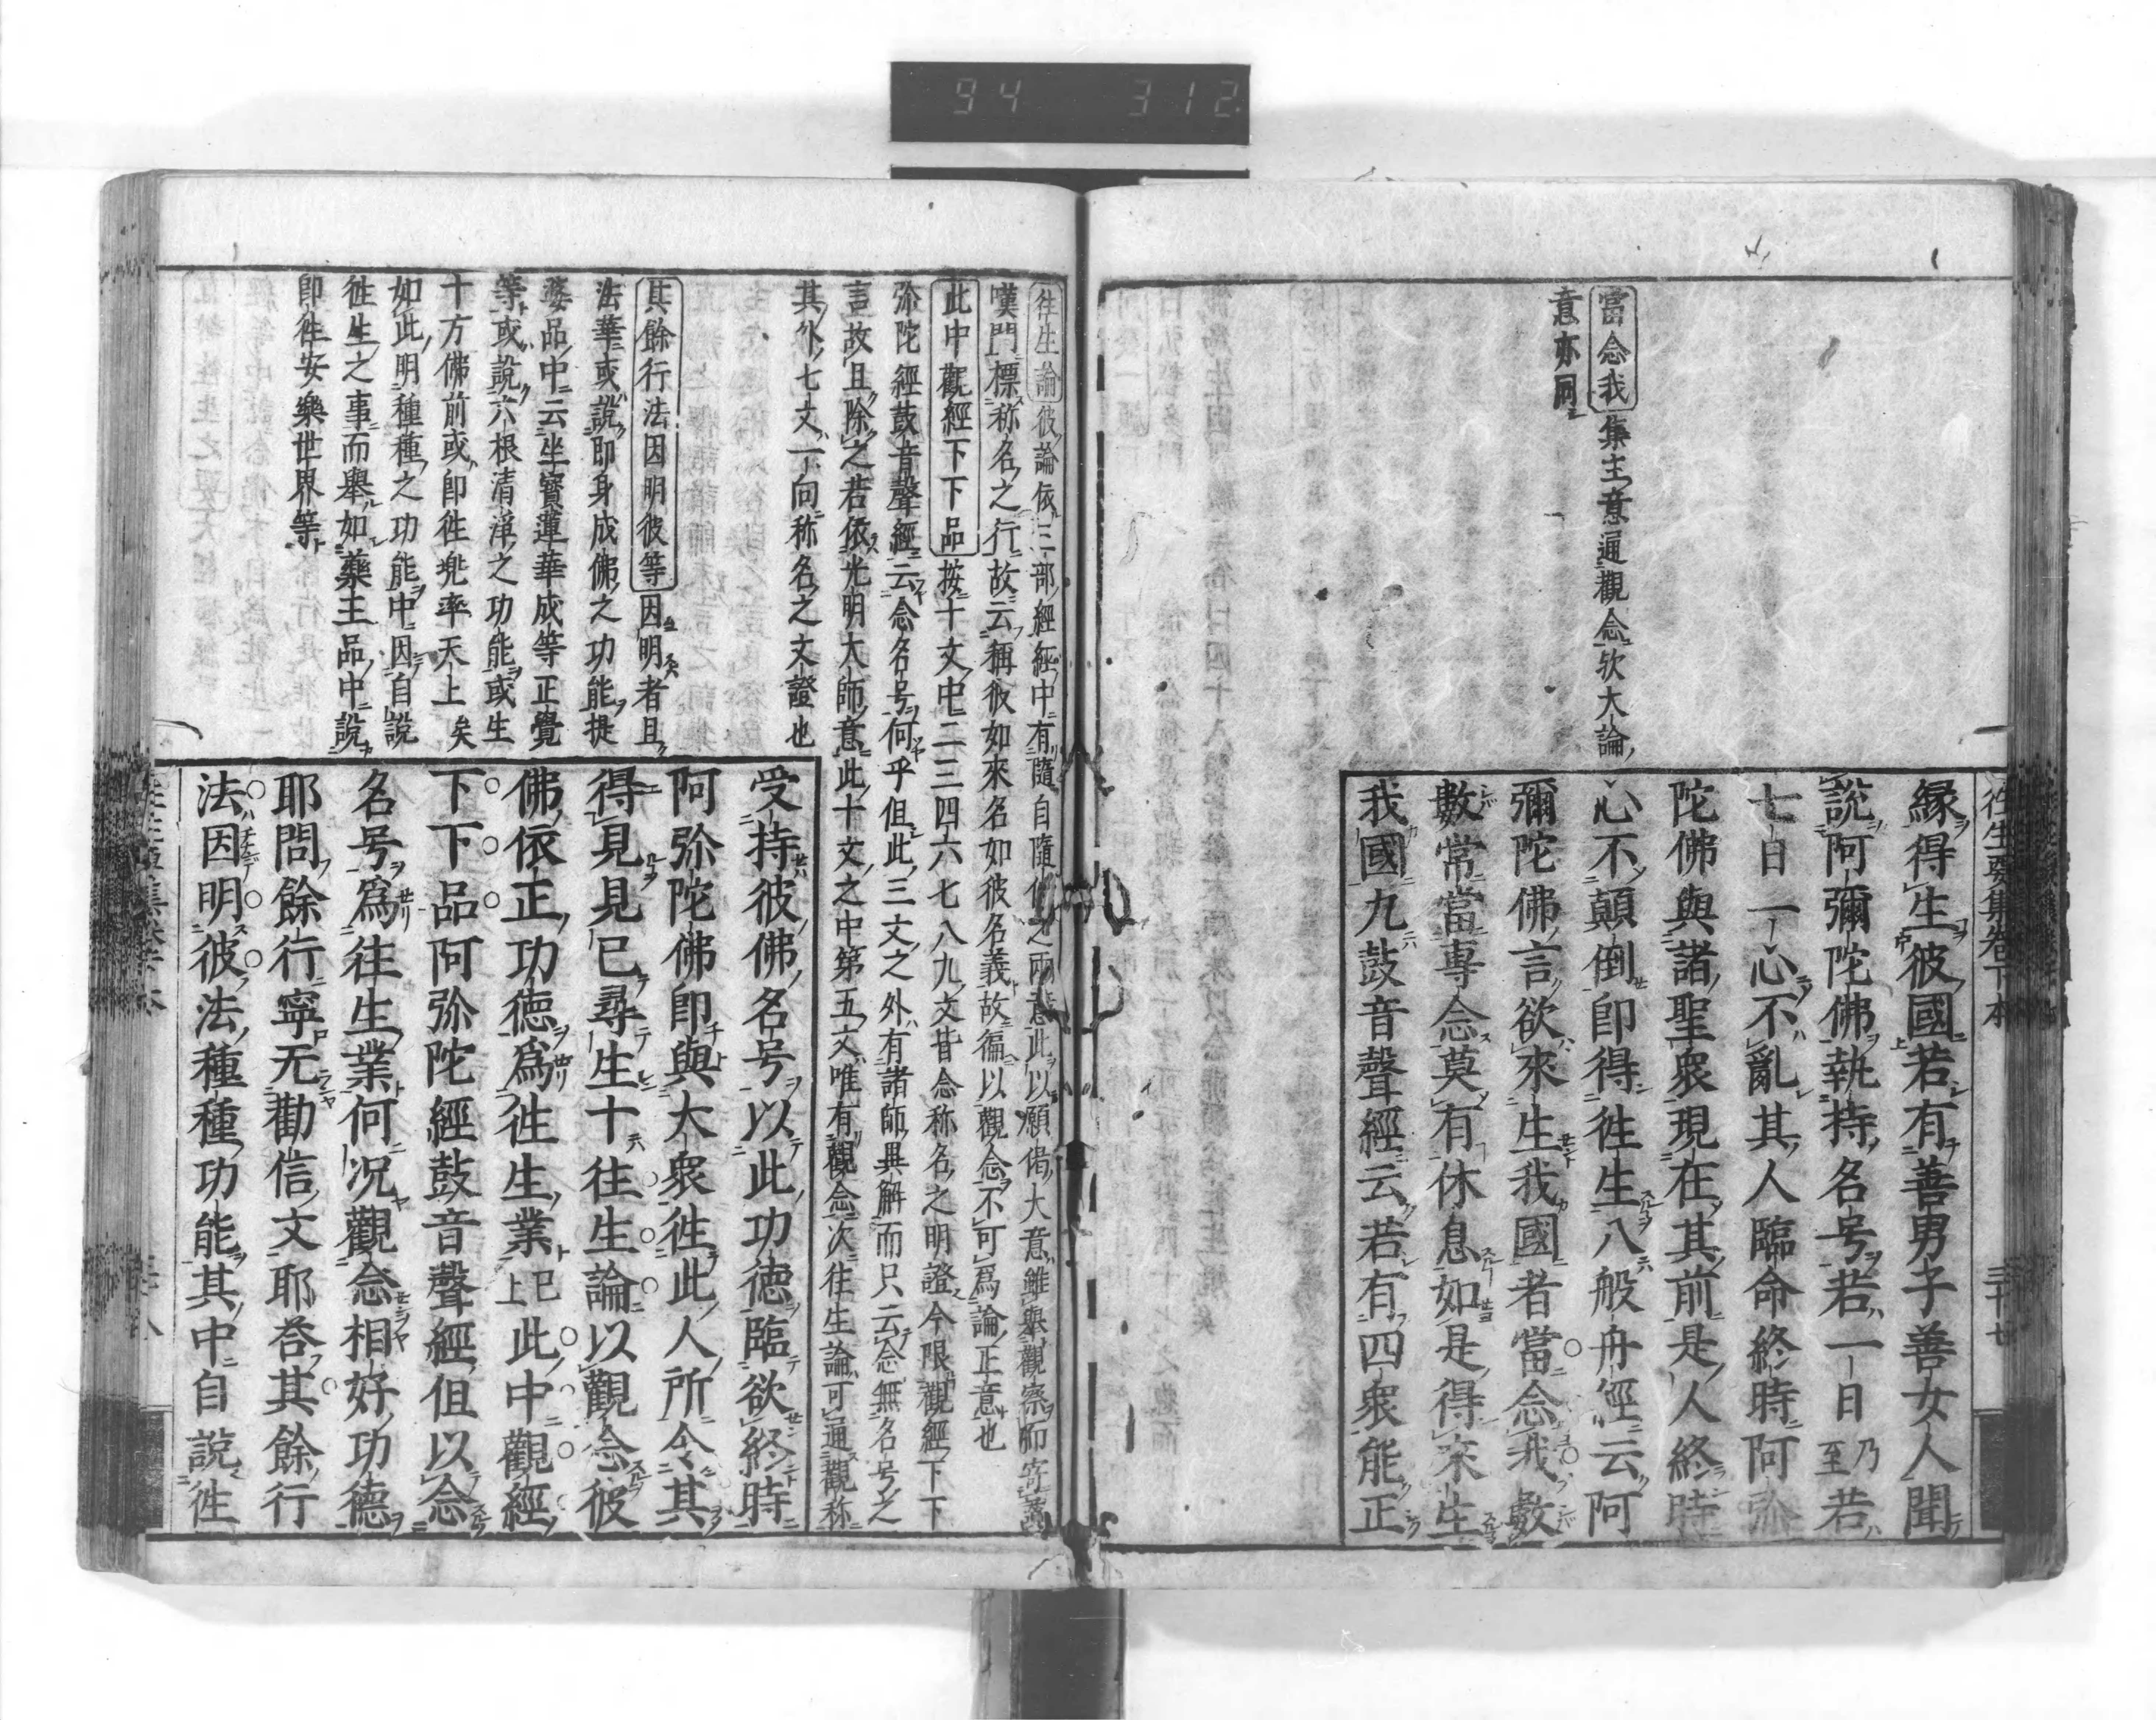 94 312
往生要集卷下本 三十七
當念我 集主意通觀念欤大論
意亦同
縁得生彼國若有善男子善女人聞
說阿彌陀佛執持名号若一日乃至若
七日一心不亂其人臨命終時阿弥
陀佛與諸聖衆現在其前是人終時
心不顛倒即得徃生八般舟經云阿
彌陀佛言欲來生我國者當念我數
數常當專念莫有休息如是得來生
我國九鼓音聲經云若有四衆能正
往生論 彼論依三部經經中有隨自隨他之兩意此以願偈大意雖舉觀察而寄讚
嘆門標称名之行故云稱彼如來名如彼名義故徧以觀念不可爲論正意也
此中觀經下下品 按十文中二三四六七八九文皆念称名之明證今限觀經下下
弥陀經鼓音聲經云念名号何乎但此三文之外有諸師異解而只云念無名号之
言故且除之若依光明大師意此十文之中第五文唯有觀念次往生論可通觀称
其外七文一向称名之文證也
其餘行法因明彼等 因明者且
法華或說即身成佛之功能提
婆品中云坐寳蓮華成等正覺
等或說六根清淨之功能或生
十方佛前或即徃兠率天上矣
如此明種種之功能中因自說
徃生之事而舉如藥王品中說
即徃安樂世界等
受持彼佛名号以此功德臨欲終時
阿弥陀佛即與大衆徃此人所令其
得見見已尋生十往生論以觀念彼
佛依正功德爲徃生業已上此中觀經
下下品阿弥陀經鼓音聲經但以念
名号爲往生業何况觀念相好功德
耶問餘行寧无勸信文耶荅其餘行
法因明彼法種種功能其中自說徃